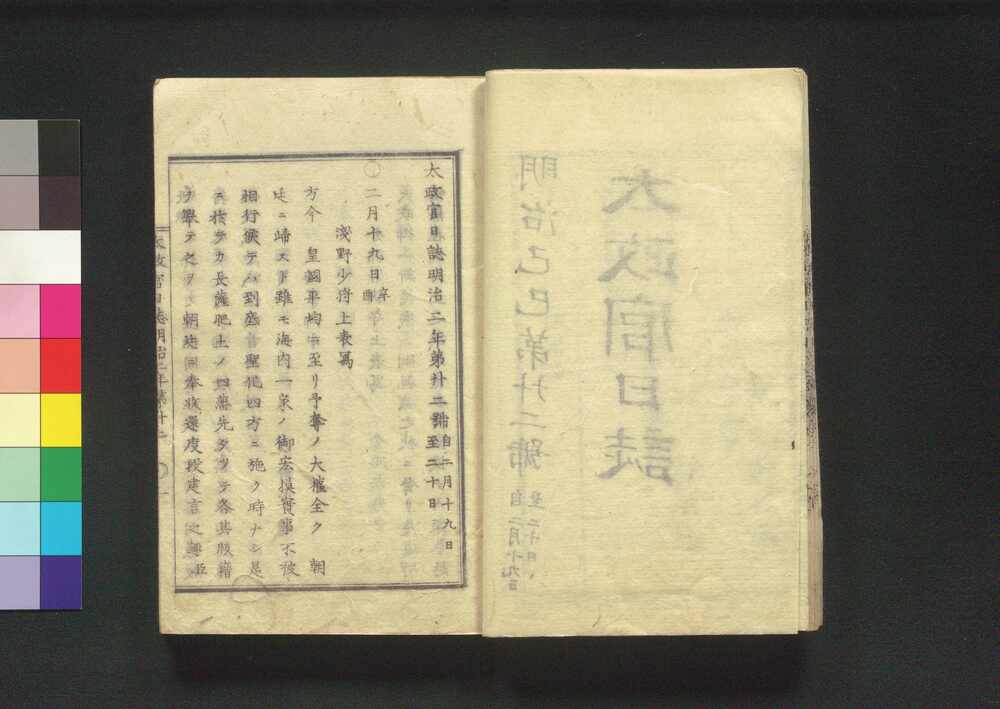 太政官日誌
明治己巳第廿二號
自二月十九日
至二十日
太政官日誌明治二年第廿二號
自二月十九日
至二十日
○二月十九日
辛酉
淺野少將上表寫
方今 皇國平均ニ至リ予奪ノ大權全ク 朝
廷ニ歸ス事雖モ海内一泉ノ御宏摸實事不被
相行候テハ到底音聖化四方ニ施ク時ナシ是
ニ於テカ長薩肥土ノ四藩先タツテ各其版籍
ヲ擧テ之ヲ 朝廷同奉收還度段建言之趣臣
太政官日誌明治二年第廿二